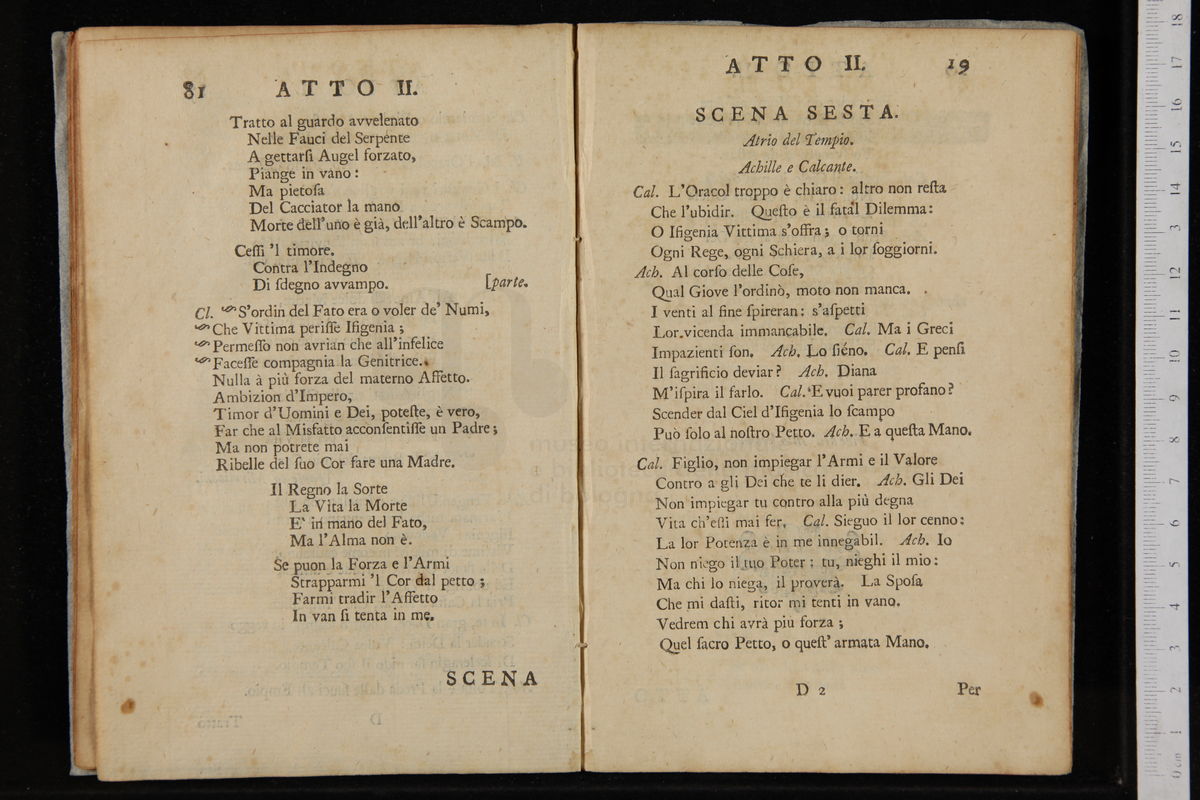 81 ATTO II.
Tratto al guardo avvelenato
Nelle Fauci del Serpente
A gettarſi Augel forzato,
Piange in vano :
Ma pietoſa
Del Cacciator la mano
Morte dell'uno è già, dell'altro è Scampo.
Ceſſi 'l timore.
Contra l'Indegno
Di ſdegno avvampo. [parte.
Cl. S'ordin del Fato era o voler de' Numi,
Che Vittima periſſe Ifigenia ;
Permeſſo non avrian che all'infelice
Faceſſe compagnia la Genitrice.
Nulla à più forza del materno Affetto.
Ambizion d'Impero,
Timor d'Uomini e Dei, poteſte, è vero,
Far che al Misfatto acconſentiſſe un Padre ;
Ma non potrete mai
Ribelle del ſuo Cor fare una Madre.
Il Regno la Sorte
La Vita la Morte
E' in mano del Fato,
Ma l'Alma non è.
Se puon la Forza e l'Armi
Strapparmi 'l Cor dal petto ;
Farmi tradir l'Affetto
In van ſi tenta in me.
SCENA
ATTO II. 19
SCENA SESTA.
Atrio del Tempio.
Achille e Calcante.
Cal. L'Oracol troppo è chiaro : altro non reſta
Che l'ubidir. Queſto è il fatal Dilemma :
O Ifigenia Vittima s'offra ; o torni
Ogni Rege, ogni Schiera, a i lor ſoggiorni.
Ach. Al corſo delle Coſe,
Qual Giove l'ordinò, moto non manca.
I venti al fine ſpireran : s'aſpetti
Lor vicenda immancabile. Cal. Ma i Greci
Impazienti ſon. Ach. Lo ſiéno. Cal. E penſi
Il ſagrificio deviar ? Ach. Diana
M'iſpira il farlo. Cal. E vuoi parer profano ?
Scender dal Ciel d'Ifigenia lo ſcampo
Può ſolo al noſtro Petto. Ach. E a queſta Mano.
Cal. Figlio, non impiegar l'Armi e il Valore
Contro a gli Dei che te li dier. Ach. Gli Dei
Non impiegar tu contro alla più degna
Vita ch'eſſi mai fer. Cal. Sieguo il lor cenno :
La lor Potenza è in me innegabil. Ach. Io
Non niego il tuo Poter : tu, nieghi il mio :
Ma chi lo niega, il proverà. La Spoſa
Che mi daſti, ritor mi tenti in vano.
Vedrem chi avrà piu forza ;
Quel ſacro Petto, o queſt' armata Mano.
D 2 Per